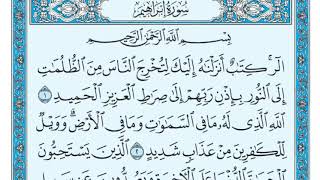 سُورَةُ إِبْرَاهِيمَ
بِسْمِ اللَّهِ الرَّحْمَٰنِ الرَّحِيمِ
الٓر ۚ كِتَٰبٌ أَنزَلْنَٰهُ إِلَيْكَ لِتُخْرِجَ النَّاسَ مِنَ الظُّلُمَٰتِ
إِلَى النُّورِ بِإِذْنِ رَبِّهِمْ إِلَىٰ صِرَٰطِ الْعَزِيزِ الْحَمِيدِ ١
اللَّهِ الَّذِي لَهُ مَا فِي السَّمَٰوَٰتِ وَمَا فِي الْأَرْضِ ۗ وَوَيْلٌ
لِّلْكَٰفِرِينَ مِنْ عَذَابٍ شَدِيدٍ ٢ الَّذِينَ يَسْتَحِبُّونَ